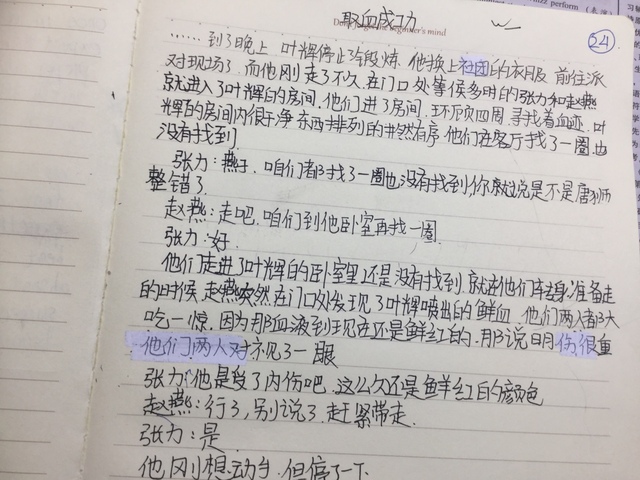 取血成功
24
……到了晚上 叶辉停止了锻炼 他换上社团的衣服 前往派
对现场了 而他刚走了不久 在门口处等候多时的张力和赵燕
就进入了叶辉的房间. 他们进了房间. 环顾四周 寻找着血迹. 叶
辉的房间内很干净 东西排列的井然有序 他们在客厅找了一圈也
没有找到
张力: 燕子, 咱们都找了一圈也没有找到, 你就说是不是唐狮
整错了
赵燕: 走吧, 咱们到他卧室再找一圈
张力: 好.
他们走进了叶辉的卧室里还是没有找到. 就在他们转身准备走
的时候 赵燕突然在门口处发现了叶辉喷出的鲜血. 他们两人都大
吃一惊. 因为那血液到现在还是鲜红的. 那说明伤很重
他们两人对视了一眼
张力: 他是受了内伤吧. 这么久还是鲜红的颜色
赵燕: 行了, 别说了 赶紧带走.
张力: 是.
他刚想动手 但停了一下